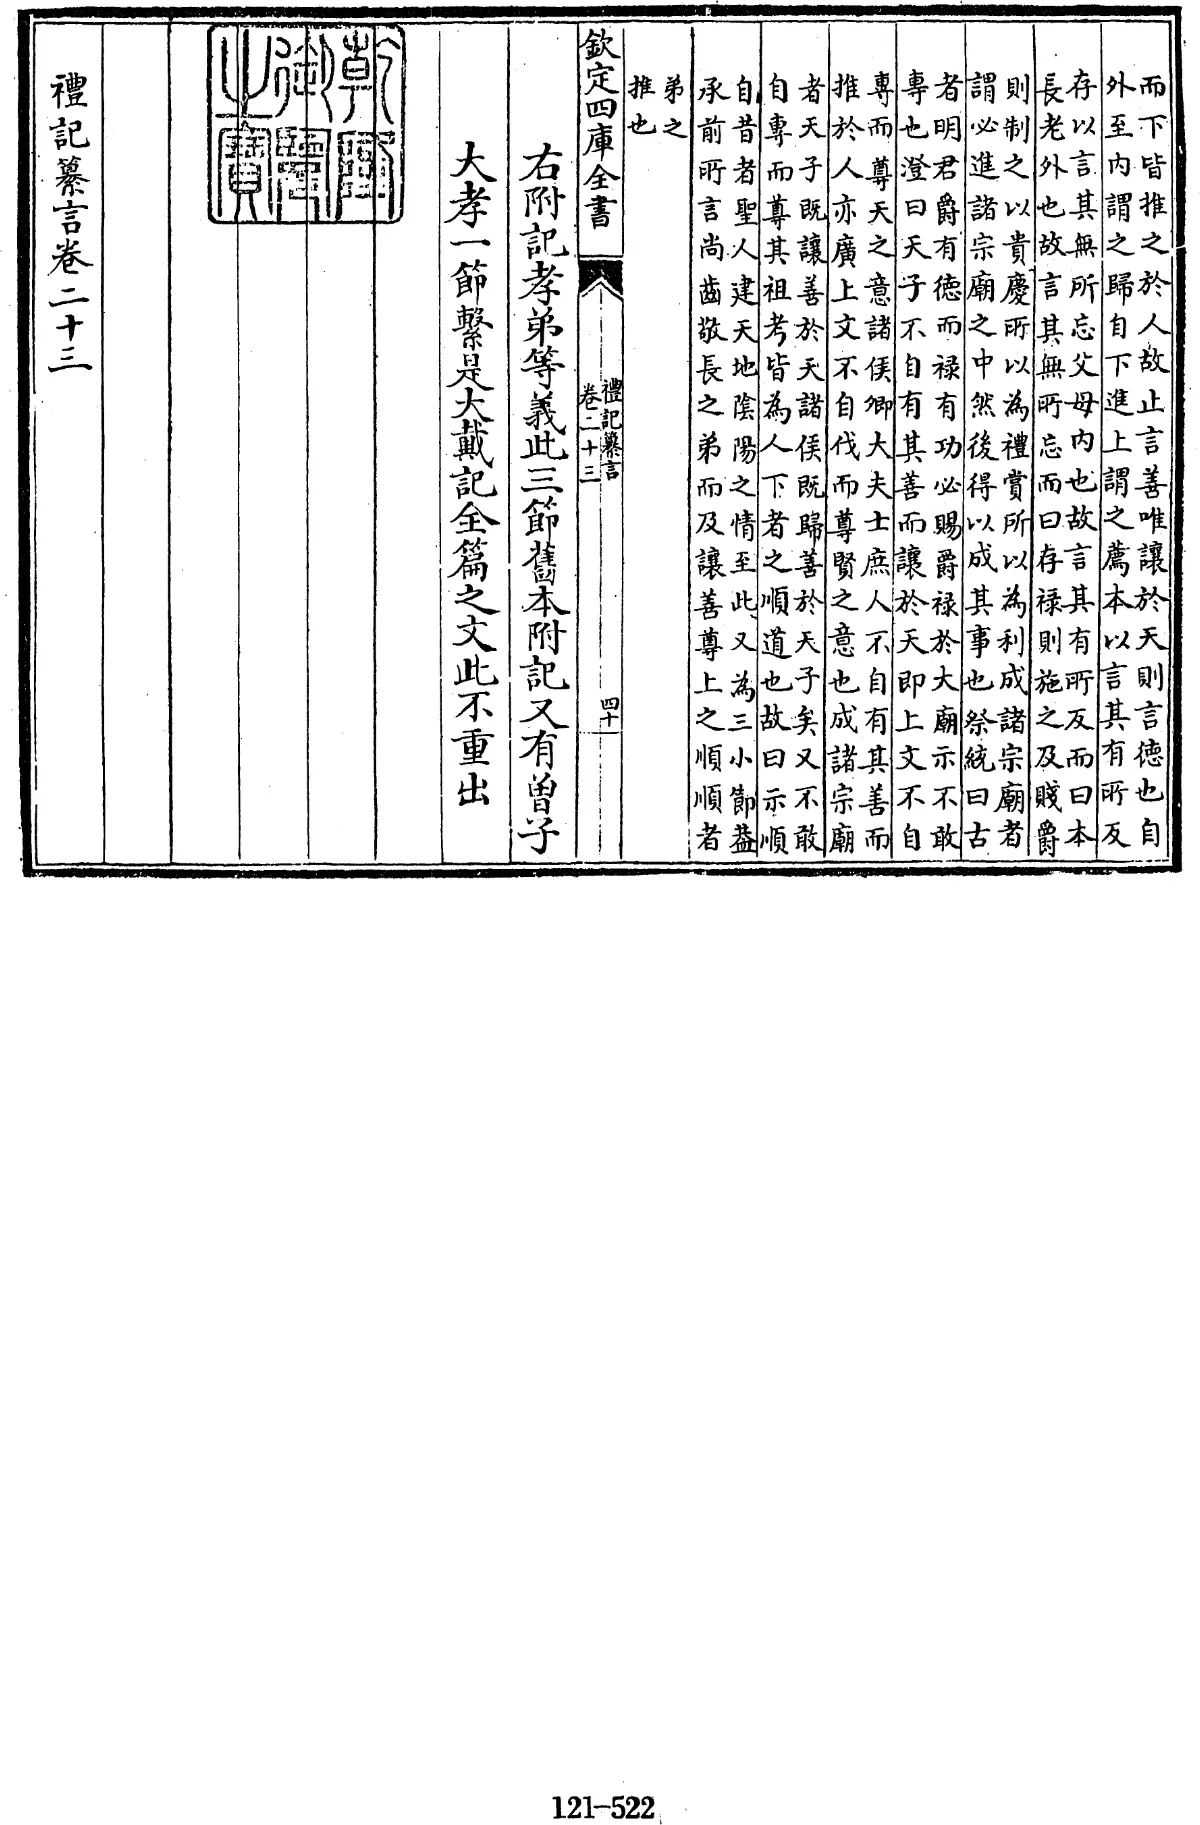 而下皆推之於人故止言善唯讓於天則言德也自
外至内謂之歸自下進上謂之薦本以言其有所反
存以言其無所忘父母内也故言其有所反而曰本
長老外也故言其無所忘而曰存禄則施之及賤爵
則制之以貴慶所以為禮賞所以為利成諸宗廟者
謂必進諸宗廟之中然後得以成其事也祭統曰古
者明君爵有德而禄有功必賜爵禄於大廟示不敢
專也澄曰天子不自有其善而讓於天即上文不自
專而尊天之意諸侯卿大夫士庶人不自有其善而
推於人亦廣上文不自伐而尊賢之意也成諸宗廟
者天子既讓善於天諸侯既歸善於天子矣又不敢
自專而尊其祖考皆為人下者之順道也故曰示順
自昔者聖人建天地陰陽之情至此又為三小節葢
承前所言尚齒敬長之弟而及讓善尊上之順順者
弟之
推也
欽定四庫全書
禮記纂言
卷二十三
四十
右附記孝弟等義此三節舊本附記又有曾子
大孝一節繫是大戴記全篇之文此不重出
乾隆
御覽
之寶
禮記纂言卷二十三
121-522